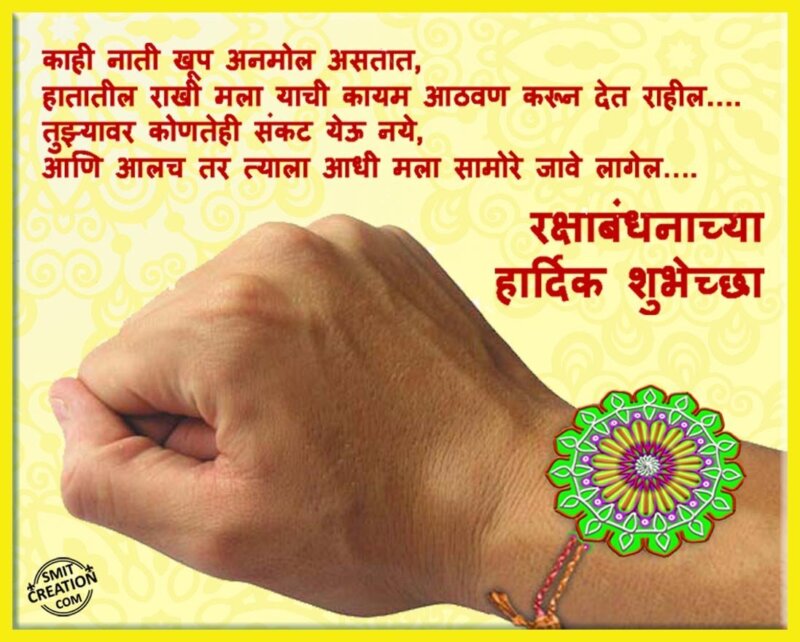 काही नाती खूप अनमोल असतात,
हातातील राखी मला याची कायम आठवण करून देत राहील....
तुझ्यावर कोणतेही संकट येऊ नये,
आणि आलच तर त्याला आधी मला सामोरे जावे लागेल....
रक्षाबंधनाच्या
हार्दिक शुभेच्छा
SMIT
CREATION
COM